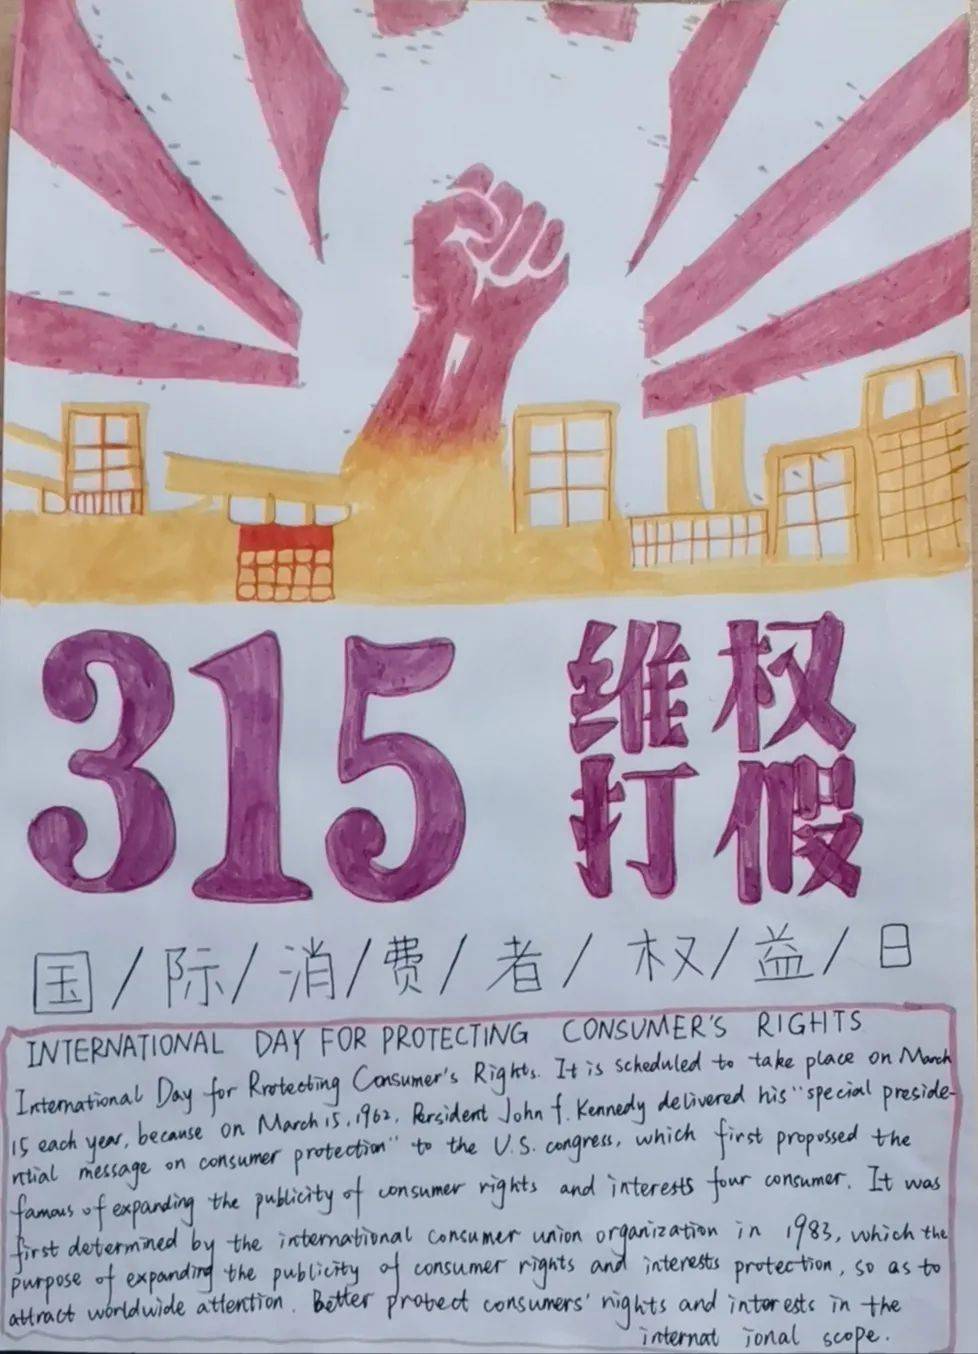 315
维权
打假
国/际/消/费/者/权/益/日
INTERNATIONAL DAY FOR PROTECTING CONSUMER'S RIGHTS
International Day for Rrotecting Consumer's Rights. It is scheduled to take place on March
15 each year, because on March 15, 1962, Persident John f. Kennedy delivered his "special preside-
ntial message on consumer protection" to the U.S. congress, which first propossed the
famous of expanding the publicity of consumer rights and interests four consumer. It was
first determined by the international consumer union organization in 1983, which the
purpose of expanding the publicity of consumer rights and interests protection, so as to
attract worldwide attention. Better protect consumers' rights and interests in the
internat ional scope.